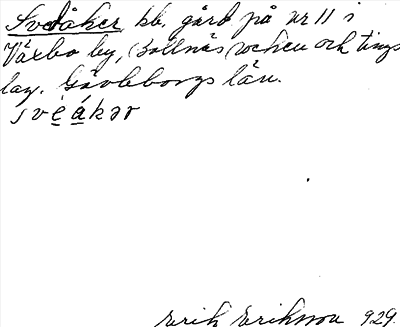 Svedåker, bb. gård på nr 11 i
Växbo by, Bollnäs socken och tings
lag. Gävleborgs län.
svèákər
Erik Eriksson 929.